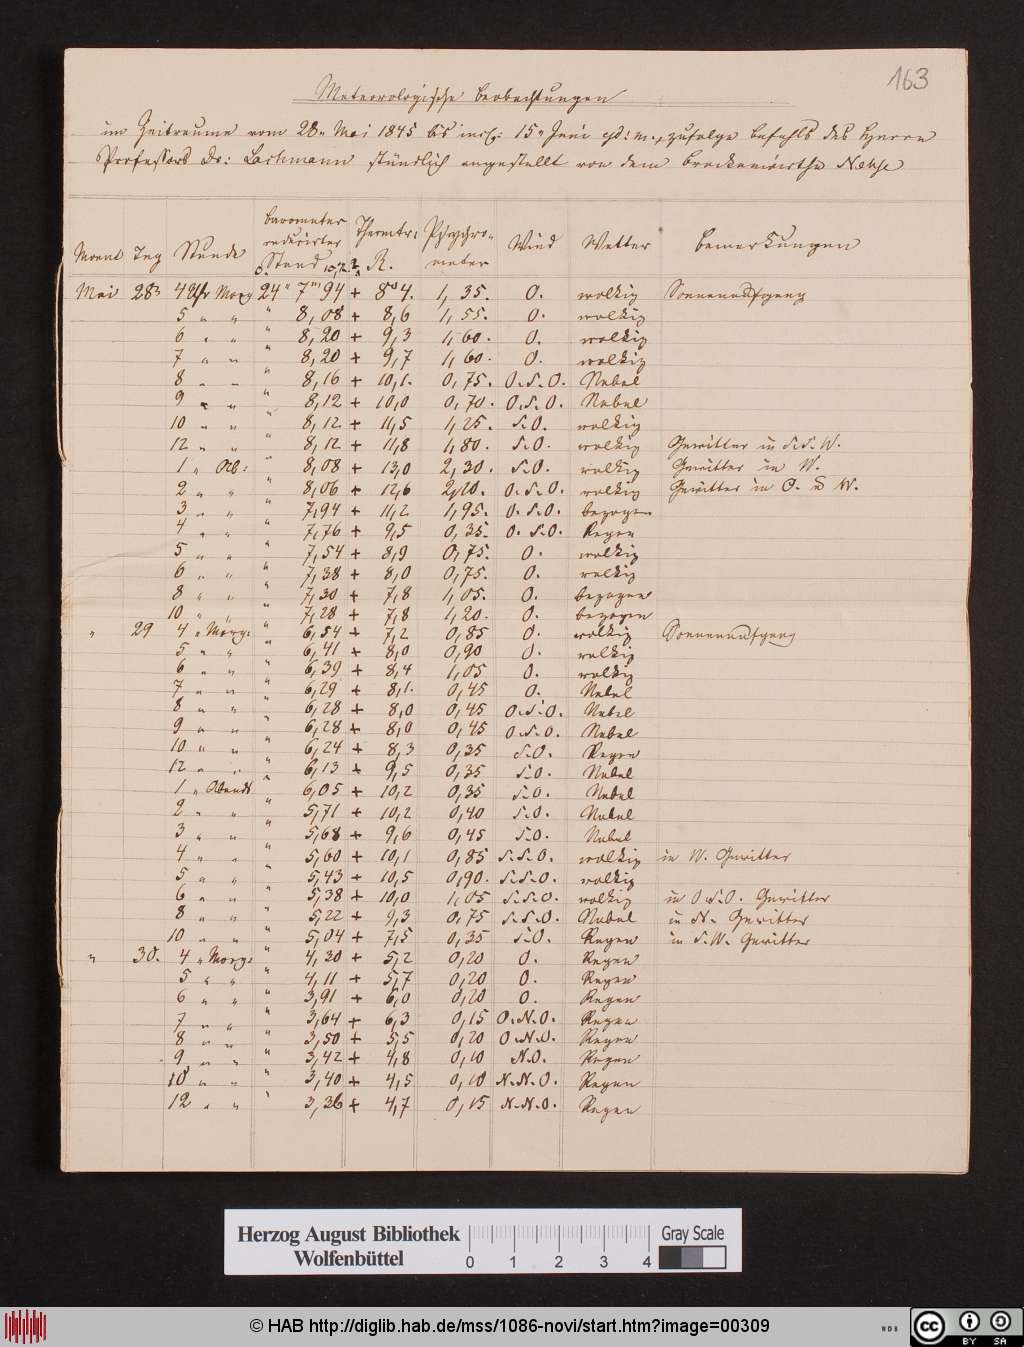 163
Meteorologische Beobachtungen
im Zeitraume vom 28. Mai 1845 bis incl: 15. Juni ejd: m., zufolge Befehls des Herrn
Professors Dr: Lachmann stündlich angestellt von dem Brockenwirthe Nehse
Monat Tag Stunde Barometer reducirter Stand 10,R. Thermtr: R. Psychrometer Wind Wetter Bemerkungen
Mai 28. 4 Uhr Morg 24" 7"' 94 + 8,4. 1,35. O. wolkig Sonnenaufgang
5 " " " 8,08 + 8,6 1,55. O. wolkig
6 " " " 8,20 + 9,3 1,60. O. wolkig
7 " " " 8,20 + 9,7 1,60. O. wolkig
8 " " " 8,16 + 10,1. 0,75. O.S.O. Nebel
9 " " " 8,12 + 10,0 0,70. O.S.O. Nebel
10 " " " 8,12 + 11,5 1,25. S.O. wolkig
12 " " " 8,12 + 11,8 1,80. S.O. wolkig Gewitter in S.S.W.
1 " Ab: " 8,08 + 13,0 2,30. S.O. wolkig Gewitter in W.
2 " " " 8,06 + 12,6 2,20. O.S.O. wolkig Gewitter in O. u W.
3 " " " 7,94 + 11,2 1,95. O.S.O. bezogen
4 " " " 7,76 + 9,5 0,35. O.S.O. Regen
5 " " " 7,54 + 8,9 0,75. O. wolkig
6 " " " 7,38 + 8,0 0,75. O. wolkig
8 " " " 7,30 + 7,8 1,05. O. bezogen
10 " " " 7,28 + 7,8 1,20. O. bezogen
" 29 4 " Morg: " 6,54 + 7,2 0,85 O. wolkig Sonnenaufgang
5 " " " 6,41 + 8,0 0,90 O. wolkig
6 " " " 6,39 + 8,4 1,05 O. wolkig
7 " " " 6,29 + 8,1. 0,45 O. Nebel
8 " " " 6,28 + 8,0 0,45 O.S.O. Nebel
9 " " " 6,28 + 8,0 0,45 O.S.O. Nebel
10 " " " 6,24 + 8,3 0,35 S.O. Regen
12 " " " 6,13 + 9,5 0,35 S.O. Nebel
1 " Abends " 6,05 + 10,2 0,35 S.O. Nebel
2 " " " 5,71 + 10,2 0,40 S.O. Nebel
3 " " " 5,68 + 9,6 0,45 S.O. Nebel
4 " " " 5,60 + 10,1 0,85 S.S.O. wolkig in W. Gewitter
5 " " " 5,43 + 10,5 0,90. S.S.O. wolkig
6 " " " 5,38 + 10,0 1,05 S.S.O. wolkig in O.S.O. Gewitter
8 " " " 5,22 + 9,3 0,75 S.S.O. Nebel in N. Gewitter
10 " " " 5,04 + 7,5 0,35 S.O. Regen in S.W. Gewitter
" 30. 4 " Morg: " 4,30 + 5,2 0,20 O. Regen
5 " " " 4,11 + 5,7 0,20 O. Regen
6 " " " 3,91 + 6,0 0,20 O. Regen
7 " " " 3,64 + 6,3 0,15 O.N.O. Regen
8 " " " 3,50 + 5,5 0,20 O.N.O. Regen
9 " " " 3,42 + 4,8 0,10 N.O. Regen
10 " " " 3,40 + 4,5 0,10 N.N.O. Regen
12 " " " 3,36 + 4,7 0,15 N.N.O. Regen
Herzog August Bibliothek
Wolfenbüttel
0 1 2 3 4
Gray Scale
© HAB http://diglib.hab.de/mss/1086-novi/start.htm?image=00309
WDB
cc BY SA